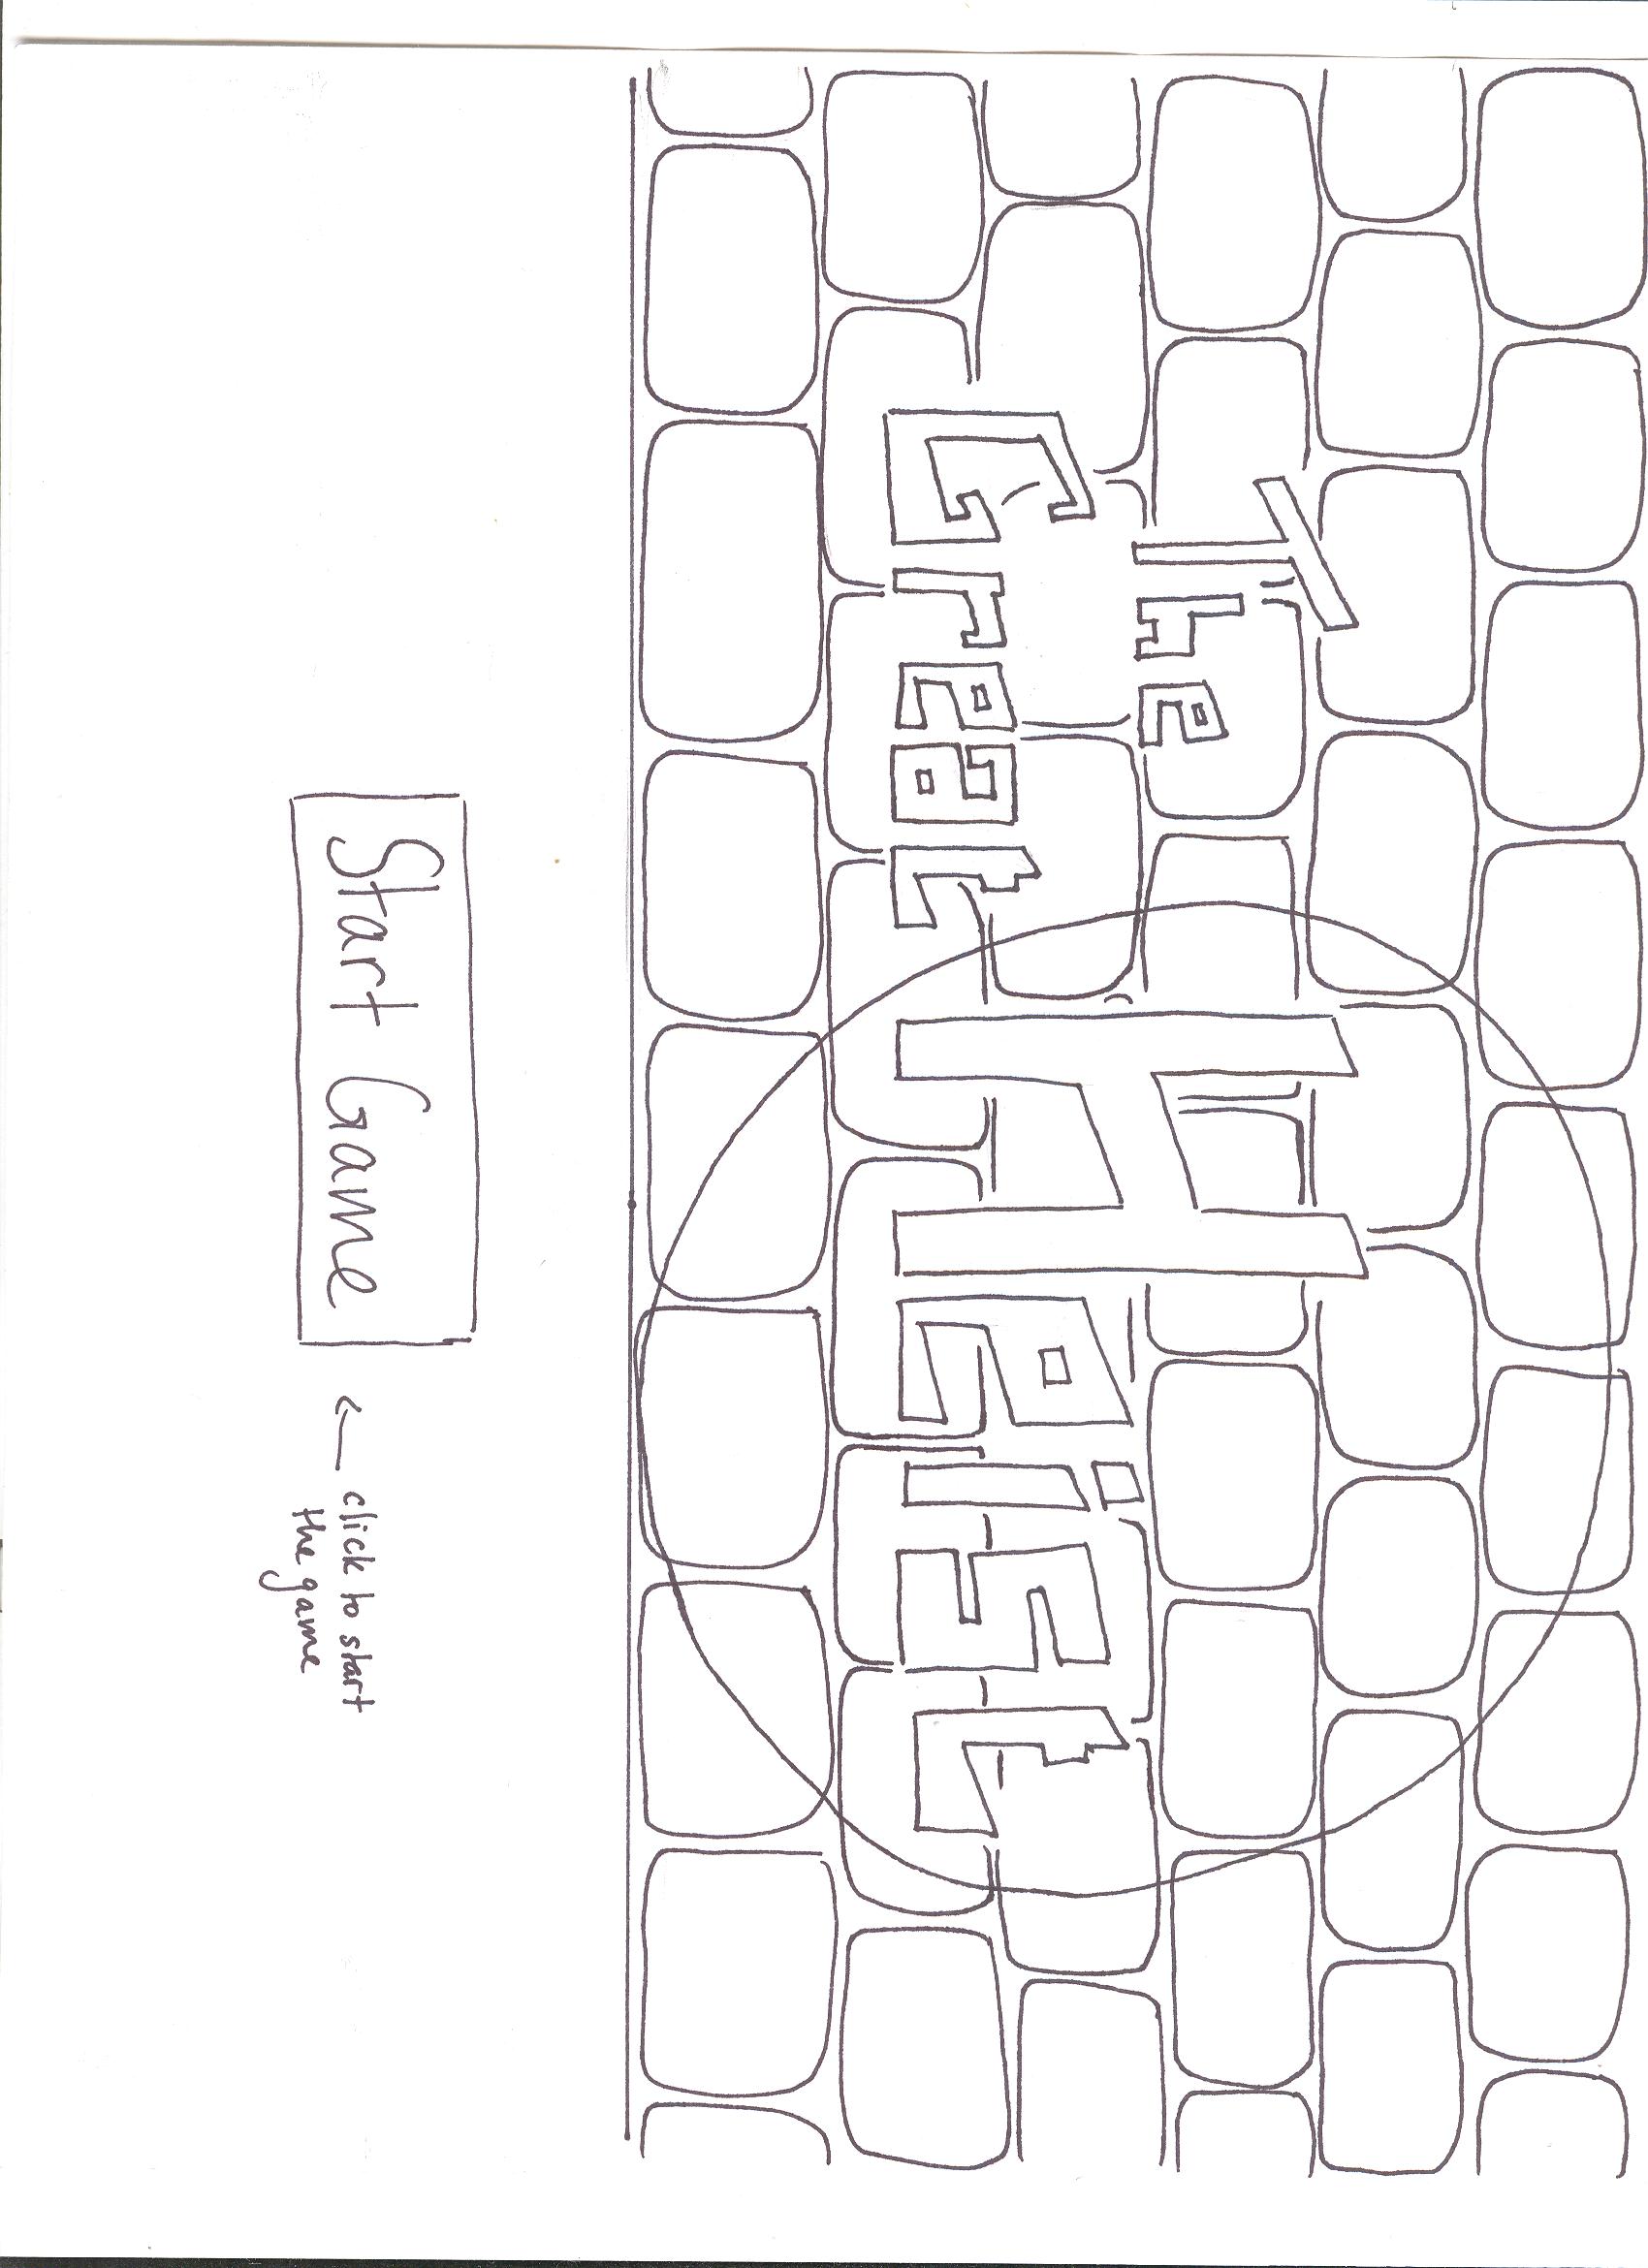 The
Great Heist
Start Game
← click to start
the game